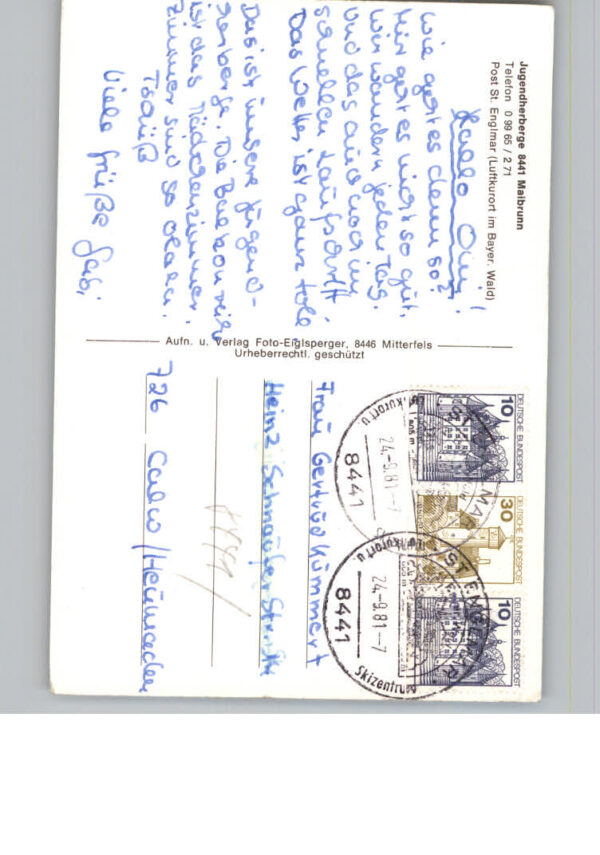 Jugendherberge 8441 Maibrunn
Telefon 0 99 65 / 2 71
Post St. Englmar (Luftkurort im Bayer. Wald)
Hallo Omi!
Wie geht es denn so?
Mir geht es nicht so gut,
wir wandern jeden Tag.
Und das auch noch im
schnellen Laufschritt.
Das Wetter ist ganz toll.
Das ist unsere Jugend-
herberge. Die Balkonreihe
ist das Mädchenzimmer.
Zimmer sind so
Tschüß
Viele Grüße Gabi
Aufn. u. Verlag Foto-Eiglsperger, 8446 Mitterfels
Urheberrechtl. geschützt
DEUTSCHE BUNDESPOST
10
DEUTSCHE BUNDESPOST
30
DEUTSCHE BUNDESPOST
10
24.-9.81.-7
8441
ST. ENGLMAR
24.-9.81.-7
8441
Luftkurort u.
Skizentrum
Frau Gertrud Kümmert
Heinz Schnaufer Str.
726 Calw/Heumaden